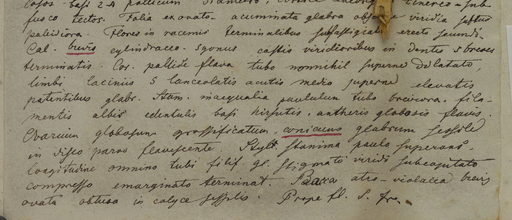 fusco tectos. Folia exovato-acuminata glabra obscure viridia subtus
pallidiora Flores in racemis terminalibus subfastigiatis erecto secundi.
Cal. brevis cylindraceo-5gonus costis viridioribus in dentes 5 breves
terminatis. Cor. pallide flava tubo nonnihil superne dilatato,
limbi laciniis 5 lanceolatis acutis medio superne elevatis
patentibus glabr. Stam. inaequalia paululum tubo breviora. fila-
mentis albis edentulis basi hirsutis. antheris globosis flavis.
Ovarium globosum grossificatum, conicum glabrum sessile
in disco parvo flavescente. Styl. stamina paulo superans
longitudine omnino tubi filif. gl. Stigmate viridi subcapitato
compresso emarginato terminat. Bacca atro-violacea brevis
ovata obtusa in calyce sessilis. Prope fl. S. Fr.